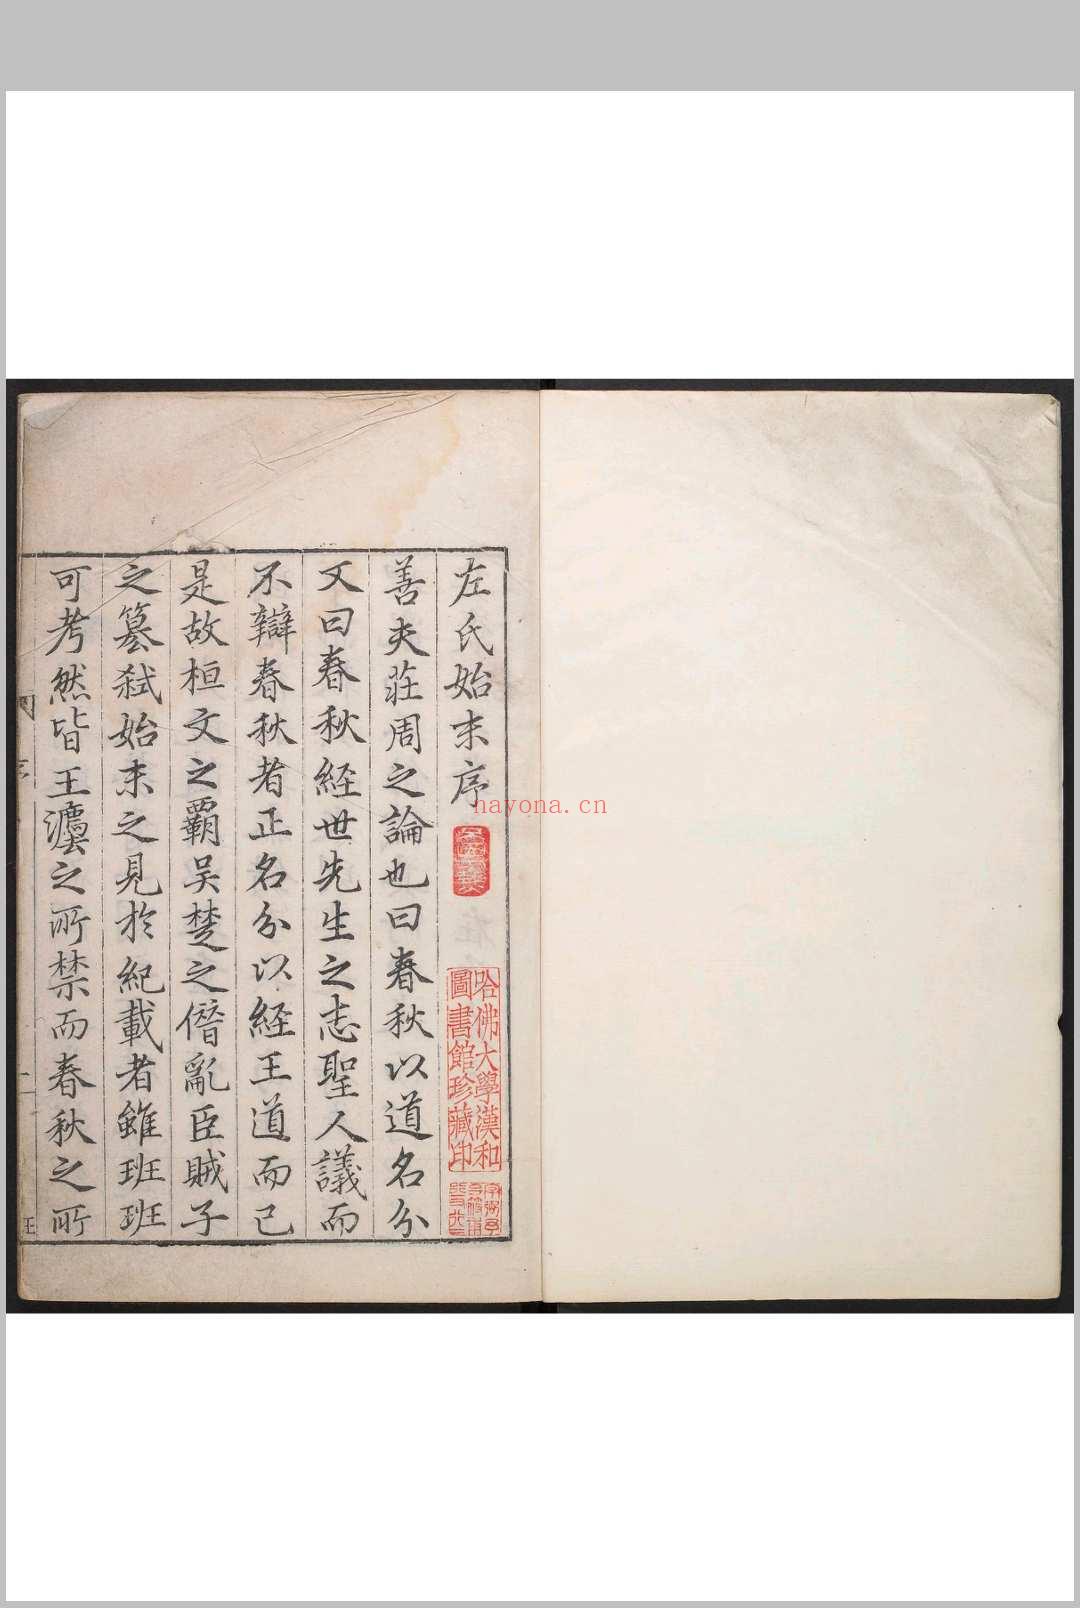 左氏始末序
善夫莊周之論也曰春秋以道名分
又曰春秋經世先生之志聖人議而
不辯春秋者正名分以經王道而已
是故桓文之覇吴楚之僭亂臣賊子
之篡弑始末之見於紀載者雖班班
可考然皆王灋之所禁而春秋之所
哈佛大學漢和
圖書館珍藏印
nayona.cn